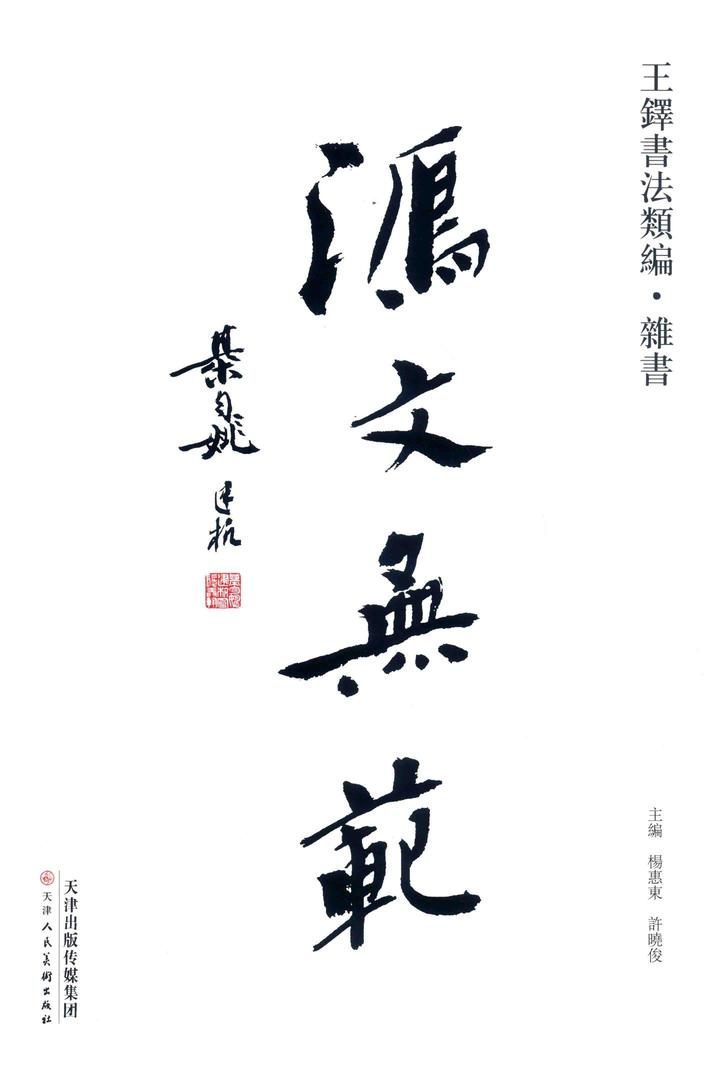 王鐸書法類編·雜書
主編 楊惠東 許曉俊
鴻文無範
集自姚建杭
天津出版传媒集团
天津人民美術出版社